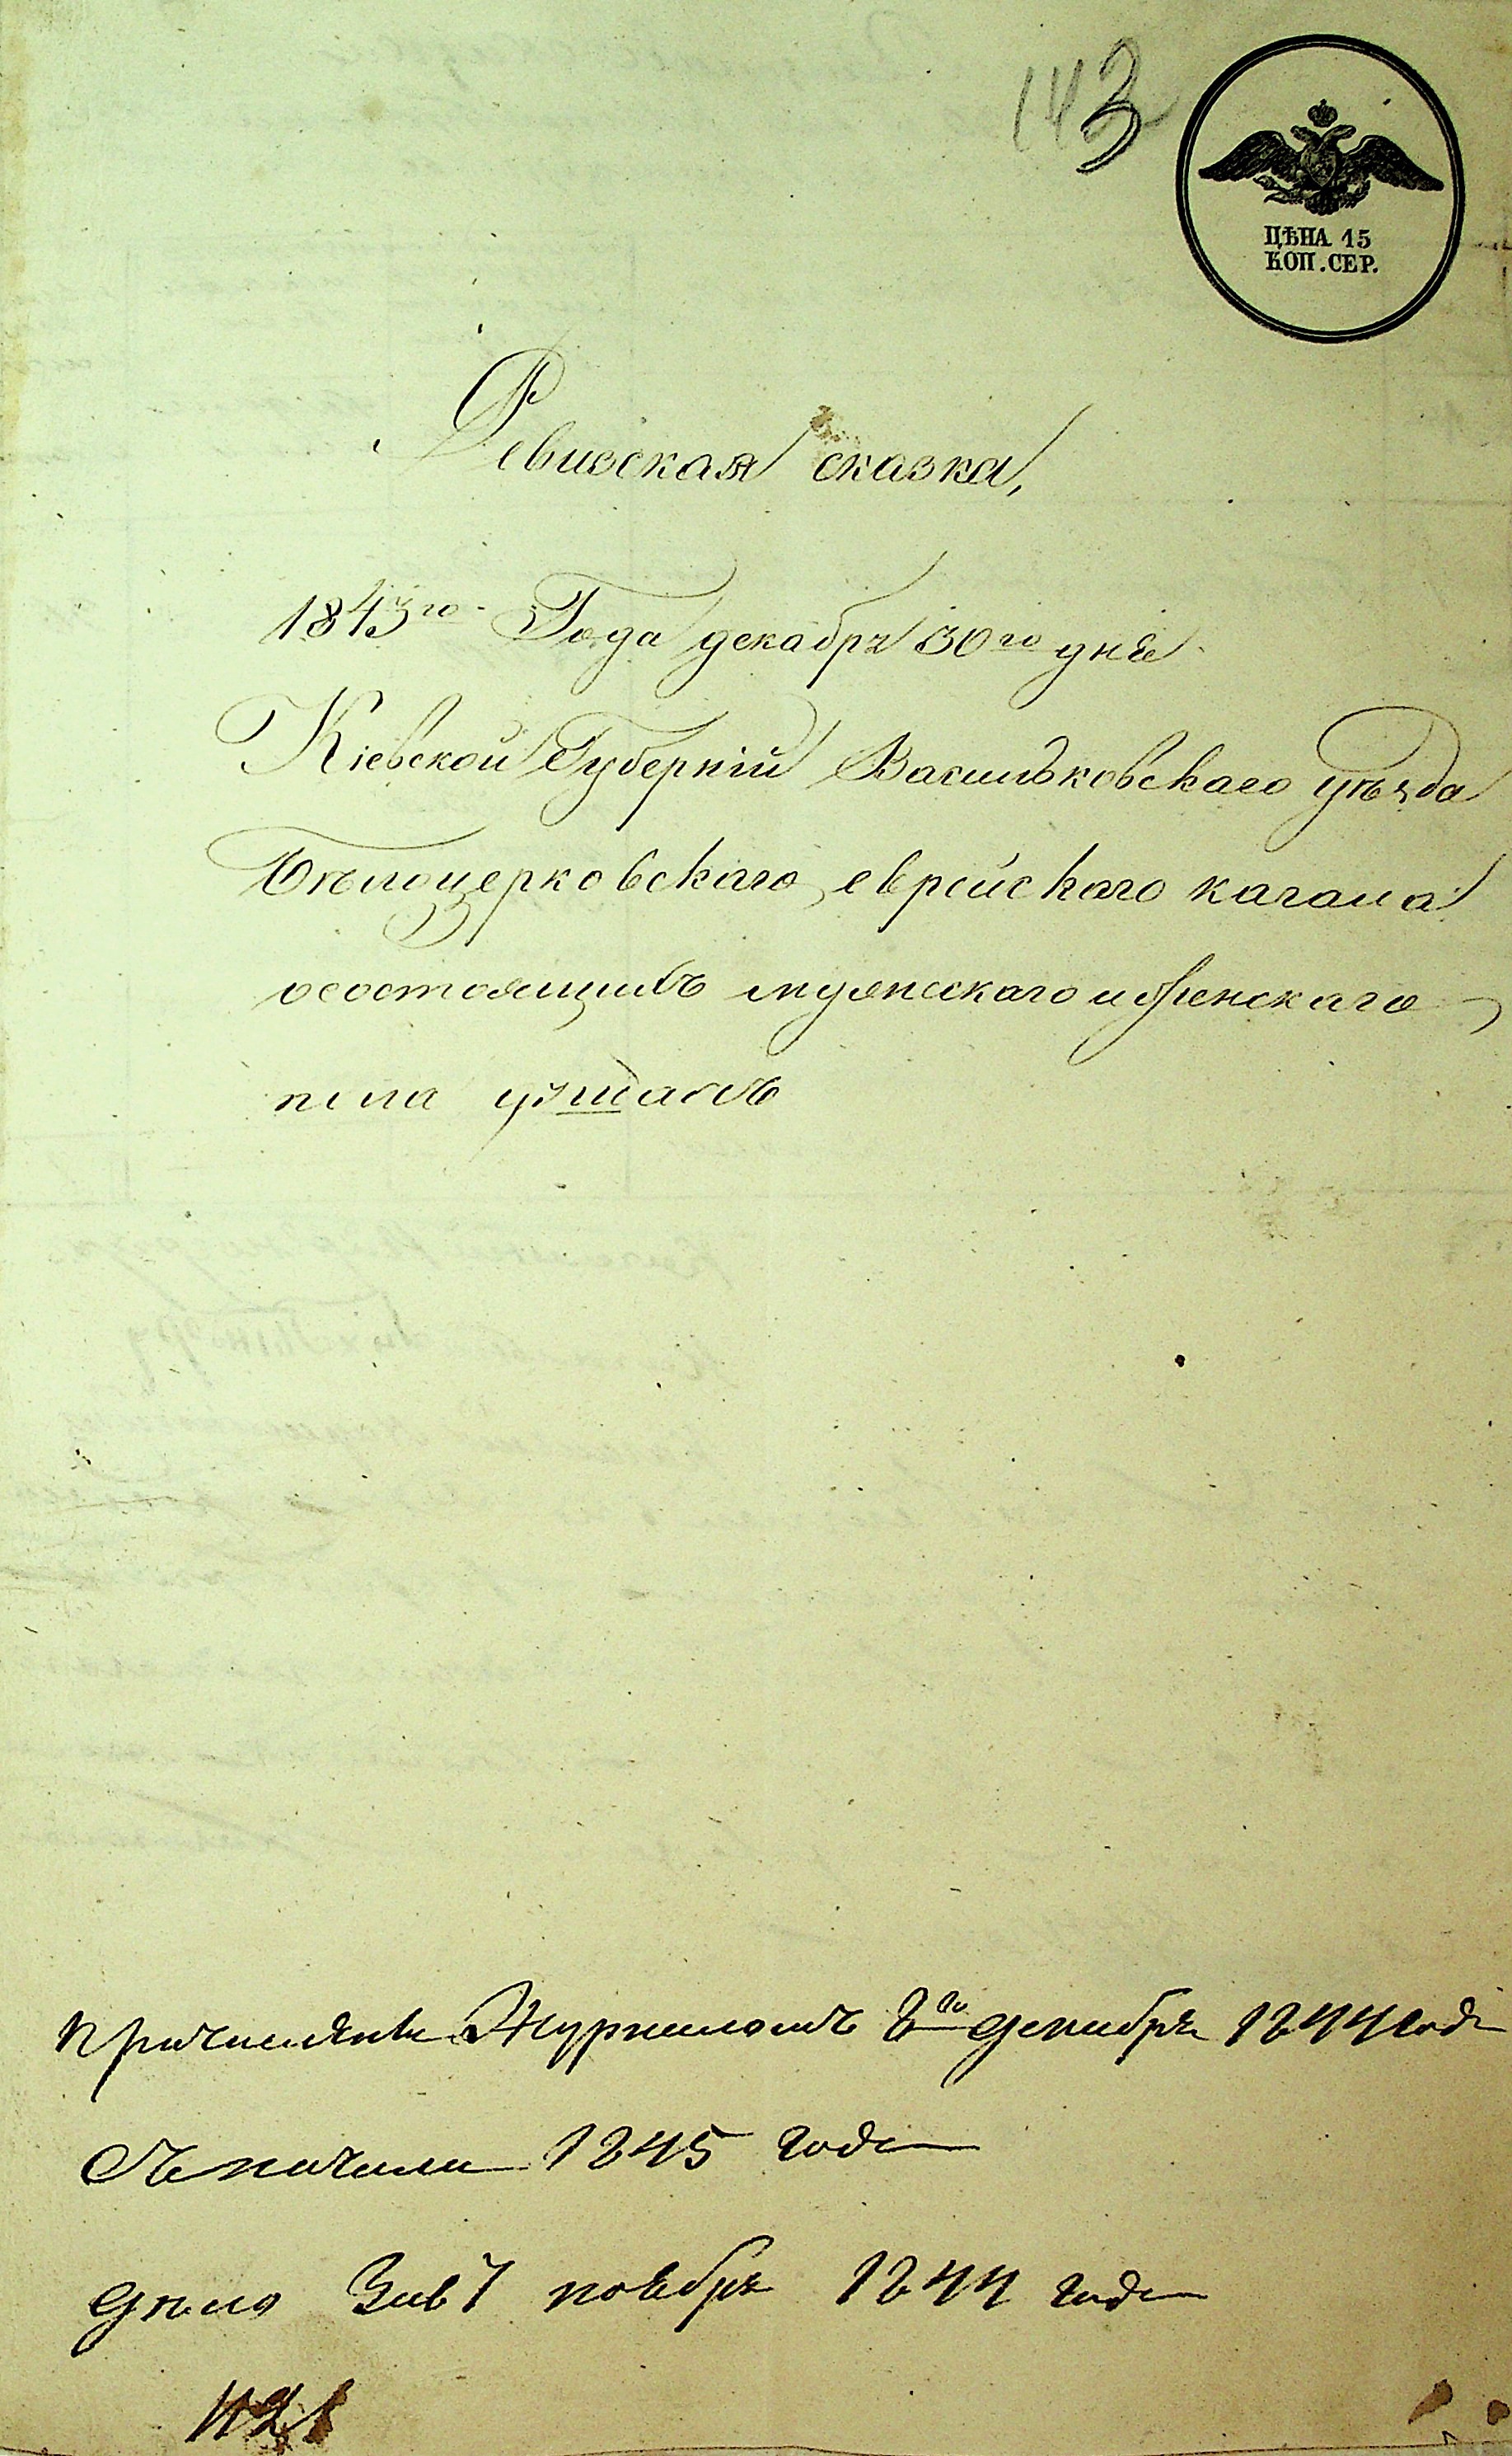 143
ЦѢНА 15
КОП. СЕР.
Ревизская сказка,
1843го Года декабря 30го дня
Кіевской Губерніи Васильковскаго уѣзда
Бѣлоцерковскаго еврейскаго кагала
о состоящихъ мужескаго и женскаго
пола душахъ
Причислены Журналомъ 8го декабря 1844 года
Съ начала 1845 года
дѣло ноября 1844 года